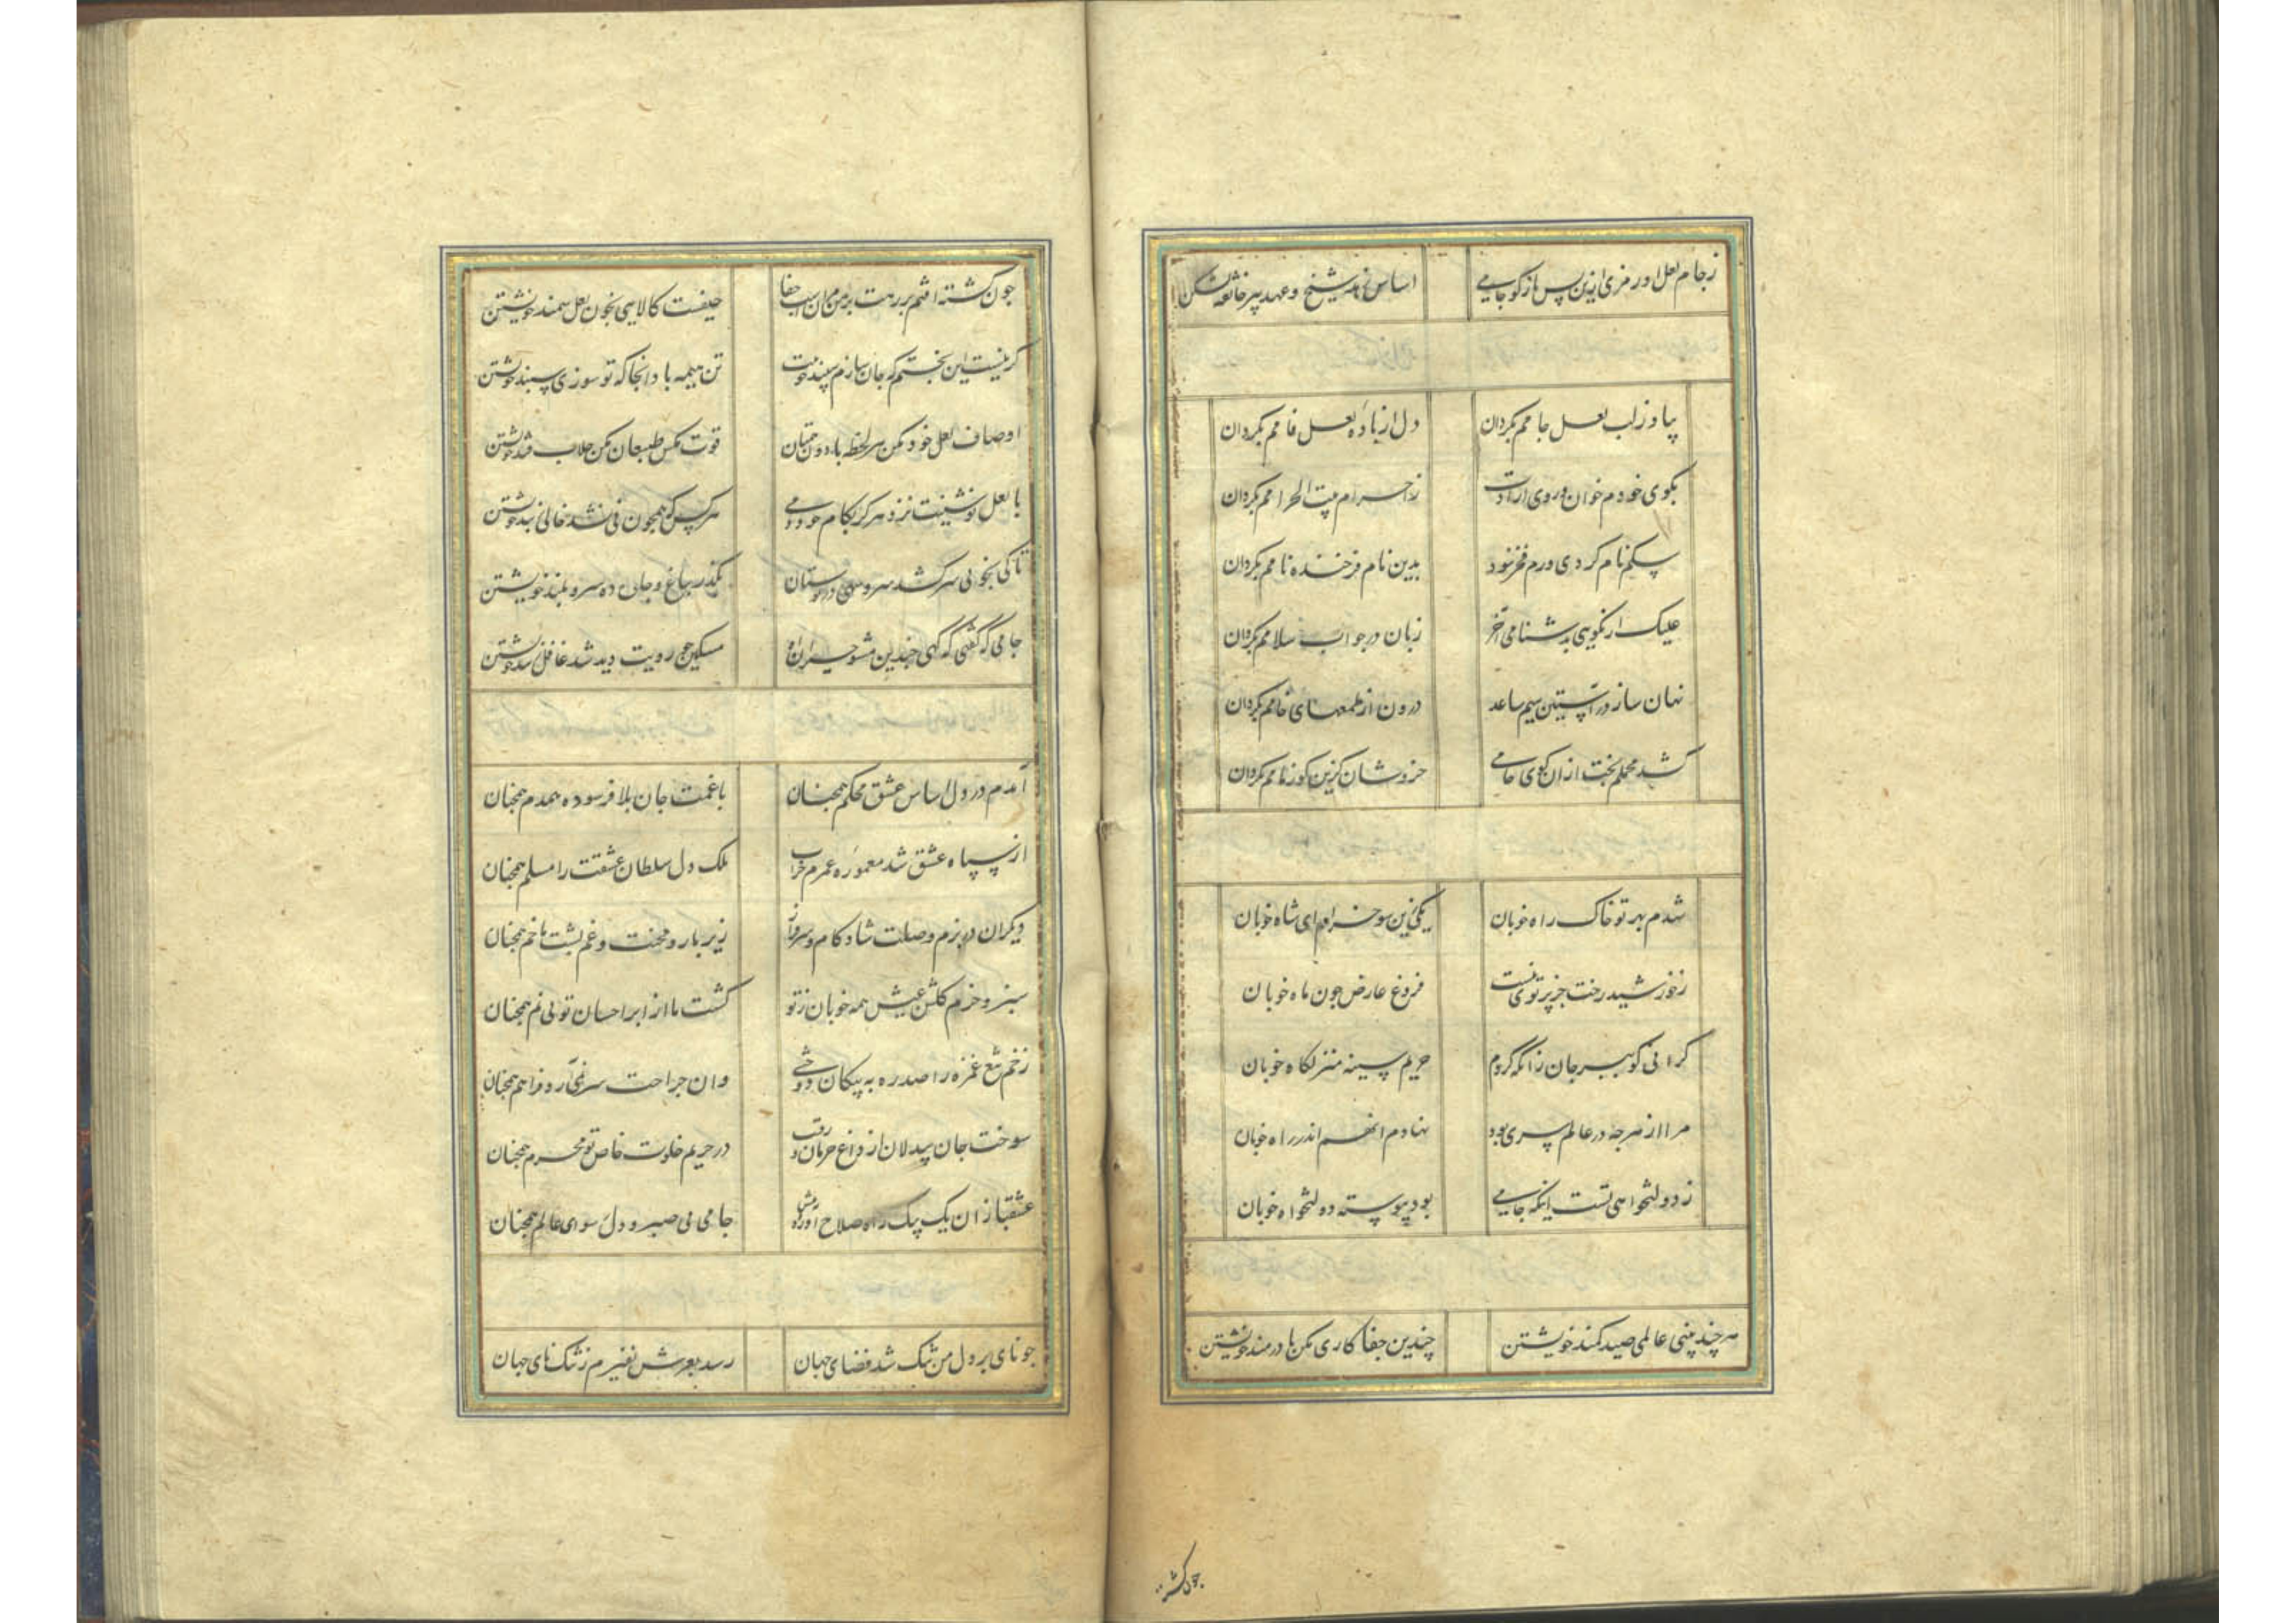 ز جام لعل او رمزی ازین پس باز کو جامی اساس زهد شیخ و عهد پیر خانقه بشکن
بیا وز لب لعل جامم بکردان دل از بادهٔ لعل فامم بکردان
بکوی خودم خوان و روی ارادت ز احرام بیت الحرامم بکردان
سکم نام کردی ورم فخر نبود بدین نام فرخنده نامم بکردان
علیک ار نکویی بدشنامی آخر زبان در جواب سلامم بکردان
نهان ساز در آستین سیم ساعد درون از طمعهای خامم بکردان
کشد محملم بخت از ان کوی جامی خروشان کزین کو زمامم بکردان
شدم بهر تو خاک راه خوبان یکی زین سو خرام ای شاه خوبان
ز خورشید رخت جز پرتوی نیست فروغ عارض چون ماه خوبان
کرانی کو ببر جان زانکه کردم حریم سینه منزلکاه خوبان
مرا از هرچه در عالم سری بود نهادم انهم اندر راه خوبان
ز دولتخواهی تست اینکه جامی بود پیوسته دولتخواه خوبان
هر چند بینی عالمی صید کمند خویشتن چندین جفا کاری مکن با دردمند خویشتن
چون کشته
چون کشته افتم بر رهت بر من مران اسب جفا حیفست کالایی بخون نعل سمند خویشتن
کر نیست این بختم که جان سازم سپند خوبت تن هیمه باد انجا که تو سوزی سپند خویشتن
اوصاف لعل خود مکن هر لحظه با دون همتان قوت مکس طبعان مکن جلاب قند خویشتن
با لعل نوشینت نزد هرکز بکام خود دمی هر کس که همچون نی نشد خالی ز بند خویشتن
تا کی بخوبی سر کشد سرو سهی در بوستان بکذر بباغ و جلوه ده سرو بلند خویشتن
جامی که کفتی که کهی چندین مشو حیران او مسکین چو رویت دید شد غافل ز پند خویشتن
آمدم در دل اساس عشق محکم همچنان با غمت جان بلا فرسوده همدم همچنان
از سپاه عشق شد معمورهٔ عمرم خراب ملک دل سلطان عشقت را مسلم همچنان
دیکران در بزم وصلت شادکام و سرفراز زیر بار محنت و غم پشت ما خم همچنان
سبز و خرم کلشن عیش همه خوبان ز تو کشت ما از ابر احسان تو بی نم همچنان
زخم تیغ غمزه را صد ره به پیکان دوختی وان جراحت سر نمی آرد فراهم همچنان
سوخت جان بیدلان از داغ حرمان و رقیب در حریم خلوت خاص تو محرم همچنان
عشقبازان یک بیک راه صلاح اورده پیش جامی بی صبر و دل رسوای عالم همچنان
چو نای بر دل من تنک شد فضای جهان رسد بعرش نفیرم ز تنکنای جهان